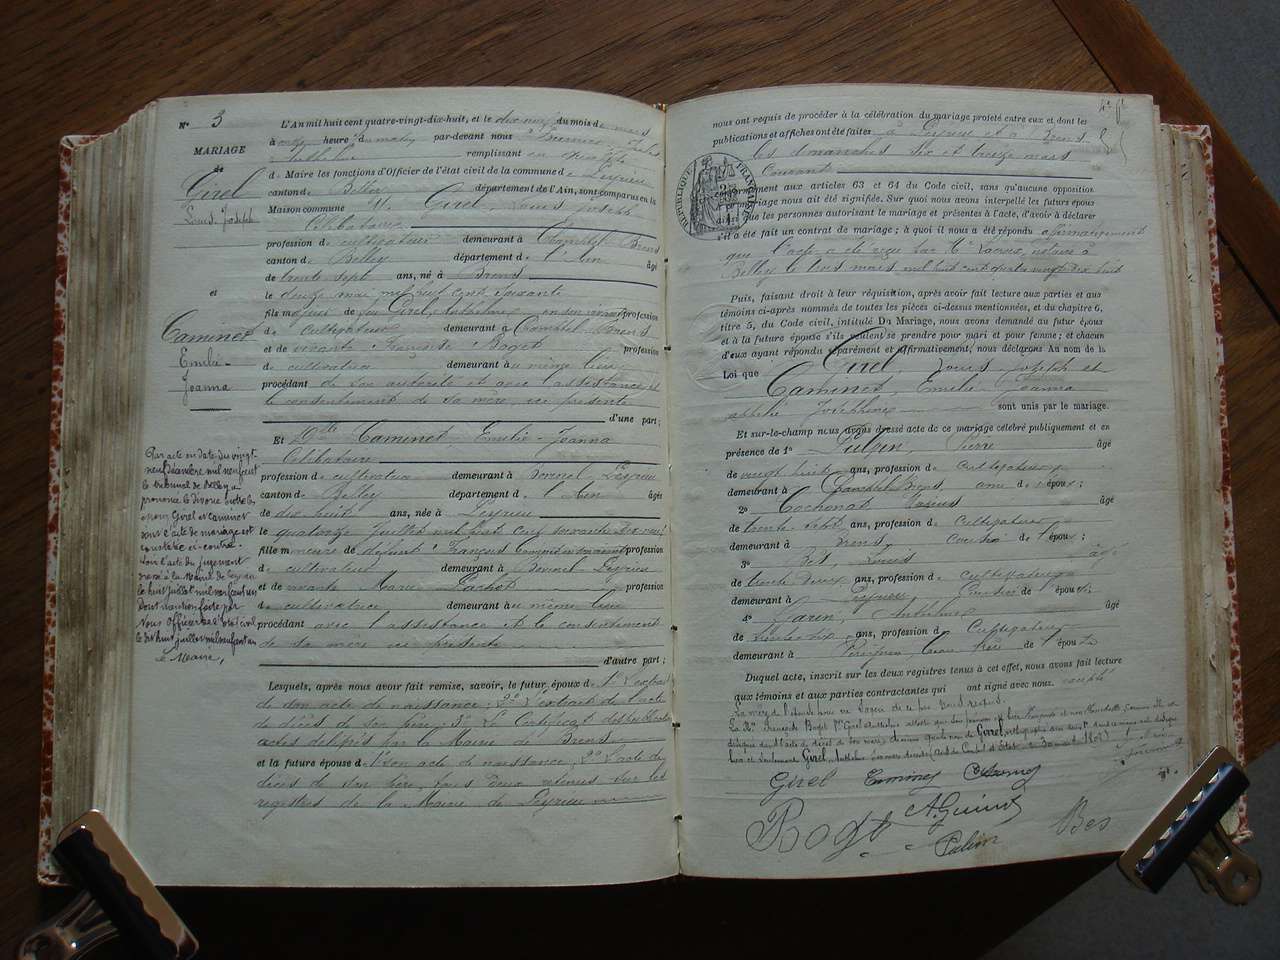 N° 3
MARIAGE
de
Girel
Louis Joseph
et
Caminet
Emélie-
Joanna
Par acte en date du vingt
neuf décembre mil neuf cent
le tribunal de Belley a
prononcé le divorce entre les
époux Girel et Caminet
dont l'acte de mariage est
constaté ci-contre.
Voir l'acte du jugement
dressé à la Mairie de Peyrieu
le huit juillet mil neuf cent un
Dont mention faite par
Nous Officier de l'état civil
le dix huit juillet mil neuf cent un
Le Maire,
L'An mil huit cent quatre-vingt-dix-huit, et le dix neuf du mois de mars
à onze heures du matin par-devant nous
remplissant
de Maire les fonctions d'Officier de l'état civil de la commune de Peyrieu
canton de Belley département de l'Ain, sont comparus en la
Maison commune M. Girel, Louis Joseph
Célibataire
profession de cultivateur demeurant à Champtel Brens
canton de Belley département de l'Ain âgé
de trente sept ans, né à Brens
le douze mai mil huit cent soixante
fils majeur de feu Girel, Anthelme en son vivant profession
de cultivateur demeurant à Champtel Brens
et de vivante Françoise Bogot profession
de cultivatrice demeurant au même lieu
procédant de son autorité et avec l'assistance et
le consentement de sa mère, ici présente
d'une part;
Et Dlle Caminet, Emélie-Joanna
Célibataire
profession de cultivatrice demeurant à Peyrieu
canton de Belley département de l'Ain âgée
de dix huit ans, née à Peyrieu
le quatorze juillet mil huit cent soixante dix neuf
fille mineure de défunt François Caminet en son vivant profession
de cultivateur demeurant à Peyrieu
et de vivante Marie Pochet profession
de cultivatrice demeurant au même lieu
procédant avec l'assistance et le consentement
de sa mère ici présente
d'autre part;
Lesquels, après nous avoir fait remise, savoir, le futur époux de 1° l'extrait
de son acte de naissance; 2° l'extrait de l'acte
de décès de son père; 3° Le Certificat des publications
actes délivrés par la Mairie de Brens
et la future épouse de 1° son acte de naissance, 2° l'acte de
décès de son père, tous deux retenus sur les
registres de la Mairie de Peyrieu
nous ont requis de procéder à la célébration du mariage projeté entre eux et dont les
publications et affiches ont été faites à Peyrieu et à Brens
les dimanches six et treize mars
Courant
RÉPUBLIQUE FRANÇAISE
Conformément aux articles 63 et 64 du Code civil, sans qu'aucune opposition
mariage nous ait été signifiée. Sur quoi nous avons interpellé les futurs époux
les personnes autorisant le mariage et présentes à l'acte, d'avoir à déclarer
s'il a été fait un contrat de mariage; à quoi il nous a été répondu affirmativement
que l'acte a été reçu par Me notaire à
Belley le trois mars mil huit cent quatre vingt dix huit
Puis, faisant droit à leur réquisition, après avoir fait lecture aux parties et aux
témoins ci-après nommés de toutes les pièces ci-dessus mentionnées, et du chapitre 6,
titre 5, du Code civil, intitulé Du Mariage, nous avons demandé au futur époux
et à la future épouse s'ils veulent se prendre pour mari et pour femme; et chacun
d'eux ayant répondu séparément et affirmativement, nous déclarons Au nom de la
Loi que Girel, Louis Joseph et
Caminet, Emélie Joanna
sont unis par le mariage.
Et sur-le-champ nous avons dressé acte de ce mariage célébré publiquement et en
présence de 1° Pulpin, Pierre âgé
de vingt huit ans, profession de Cultivateur
demeurant à Champtel Brens ami de l'époux;
2° Cochonat âgé
de trente sept ans, profession de Cultivateur
demeurant à Brens cousin de l'époux;
3° Bés, Louis âgé
de trente deux ans, profession de Cultivateur
demeurant à Peyrieu Cousin de l'épouse;
4° Anthelme âgé
de trente six ans, profession de Cultivateur
demeurant à beau frère de l'épouse
Duquel acte, inscrit sur les deux registres tenus à cet effet, nous avons fait lecture
aux témoins et aux parties contractantes qui ont signé avec nous.
Girel Caminet
Bogot A. Guinet Bés
Pulpin